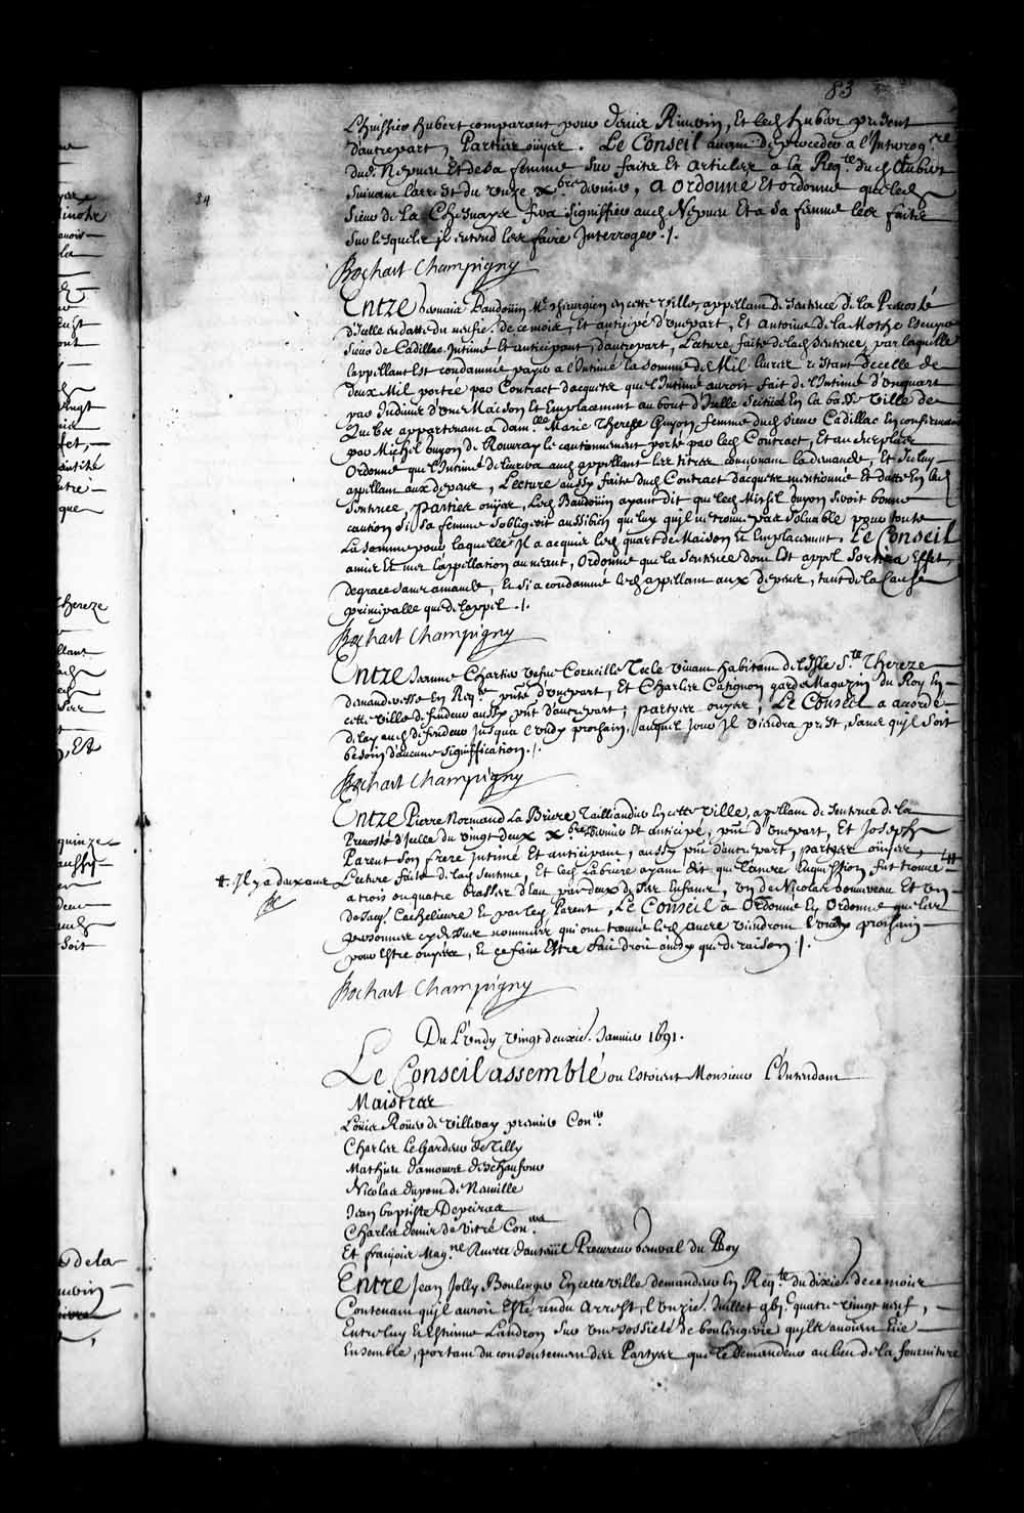 83
L'huissier hubert comparant pour denis Riverin, Et led. hubert present
d'autrepart, Partyes ouyes. Le Conseil avant de proceder a l'Interog.re
dud. Nepveu Et de sa femme sur faits Et articles a la Reqte dud. Aubert
suivant l'arrest du unze Xbre dernier, a ordonné Et ordonne que led.
Sieur de la Chesnaye fera signiffier aud. Nepveu Et a sa femme les faits
sur lesquels il entend les faire Interroger ./.
34
Bochart Champigny
Entre Gervais Baudoüin Me chirurgien en cette ville, appellant de sentence de la Prevosté
d'Icelle en datte du neufie. de ce mois, Et anticipé d'unepart, Et Antoine de la Mothe Escuyer
Sieur de Cadillac Intimé Et anticipant, d'autrepart, Lecture faite de lad. sentence, par laquelle
l'appellant Est condamné payer a l'Intimé la somme de Mil livres restant de celle de
deux Mil porté par Contract d'acquets que l'Intimé auroit fait de l'Intimé d'un quart
par Indivis d'une Maison Et Emplacement au bout d'Icelle scitüés En la basse ville de
Quebec appartenant a dam.lle Marie Therese Guyon femme dud. sieur Cadillac En confirmant
par Michel Guyon de Rouvray le cautionnement porté par led. Contract, Et au surplus
Ordonné que l'Intimé delivrera aud. appellant les titres concernant la demande, Et Iceluy
appellant aux depens, Lecture aussy faite dud. Contract d'acquets mentionné Et datté En lad.
Sentence, partyes ouyes, Led. Baudoüin ayant dit que led. Michel Guyon seroit bonne
caution si sa femme s'obligeoit aussi bien que luy qu'il ne trouve pas solvable pour toute
La somme pour laquelle Il a acquis led. quart de Maison Et Emplacement. Le Conseil
a mis Et met l'appellation au neant, Ordonne que la sentence dont Est appel sortira Effet,
de grace sans amande, Et si a condamné led. appellant aux depens, tant de la Cause
principalle que de l'appel ./.
Bochart Champigny
Entre Jeanne Chartier vefve Corneille Tecle vivant habitant de l'Isle Ste Thereze
demanderesse En Reqte pnte d'unepart, Et Charles Catignon garde Magazin du Roy En
cette ville defendeur aussy pnt d'autrepart; partyes ouyes; Le Conseil a accordé
delay aud. defendeur Jusqu'a Lundy prochain, auquel jour Il viendra prest, sans qu'il soit
besoin d'aucune signiffication ./.
Bochart Champigny
Entre Pierre Normand La Briere Taillandier En cette ville, appellant de sentence de la
Prevosté d'Icelle du vingt deux Xbre dernier Et anticipé, pnt d'unepart, Et Joseph
Parent son frere Intimé Et anticipant, aussy pnt d'autrepart, partyes oüyes,
Lecture faite de lad. sentence, Et led. Labriere ayant dit que l'ancre En question fut trouvé #
# Il y a deux ans
a trois ou quatre brasses d'eau par deux de ses Enfans, un de Nicolas bonneveau Et un
de Jacq. Cachelievre Et par led. Parent, Le Conseil a Ordonné Et Ordonne que les
personnes cy dessus nommées qui ont trouvé led. ancre viendront Lundy prochain
pour Estre ouyes, Et ce fait Estre fait droit ainsy que de raison ./.
Bochart Champigny
Du Lundy vingt deuxie. Janvier 1691.
Le Conseil assemblé ou Estoient Monsieur L'Intendant
Maistres
Loüis Roüer de Villeray premier Con.er
Charles Le Gardeur de Tilly
Mathieu damours deschaufour
Nicolas dupont de Neuville
Jean baptiste Depeiras
Charles Denis de Vitré Con.ers
Et françois Mag.ne Ruette d'auteüil Procureur General du Roy
Entre Jean Jolly Boulenger En cette ville demandeur En Reqte du dixie. decembre
Contenant qu'il auroit Esté rendu Arrest, l'onzie. Juillet gbj.c quatre vingt neuf,
Entre luy Et Estienne Landron sur une societé de boulengerie qu'ils avoient Eüe
Ensemble, portant du consentement des Partyes que le demandeur au lieu de la fourniture